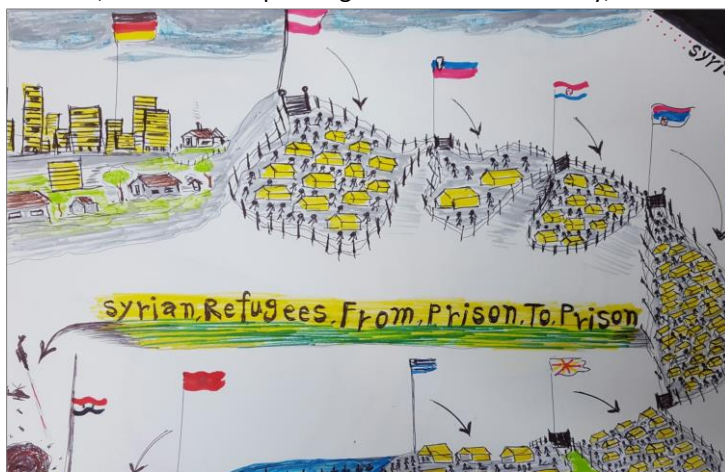 syri
syrian,Refugees,From,Prison,To,Prison